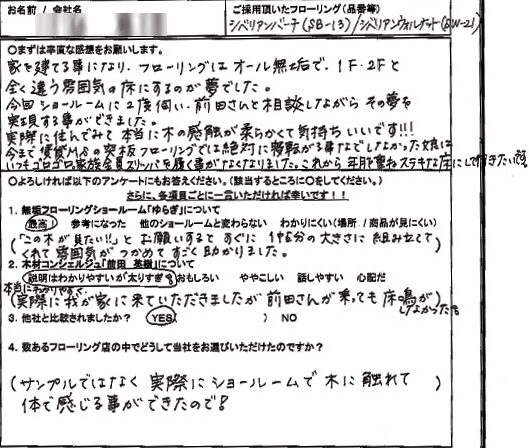 お名前／会社名
ご採用頂いたフローリング(品番等)
シベリアンバーチ(SB-13)/シベリアンウォルナット(SW-21)
○まずは率直な感想をお願いします。
家を建てる事になり、フローリングはオール無垢で、1F・2Fと
全く違う雰囲気の床にするのが夢でした。
今回ショールームに2度伺い、前田さんと相談しながらその夢を
実現する事ができました。
実際に住んでみて本当に木の感触が柔らかくて気持ちいいです!!!
今まで賃貸の突板フローリングでは絶対に寝転がる事などしなかった
いつもゴロゴロ家族全員スリッパを履く事がなくなりました。これから年月を重ねステキな床にして行きたい
○よろしければ以下のアンケートにもお答えください。(該当するところに○をしてください。)
さらに、各項目ごとに一言いただければ幸いです！！
1. 無垢フローリングショールーム「ゆらぎ」について
最高！ 参考になった 他のショールームと変わらない わかりにくい(場所 / 商品が見にくい)
(「この木が見たい!!」とお願いするとすぐに1帖分の大きさに組み立てて)
くれて雰囲気がつかめてすごく助かりました。
2. 木材コンシェルジュ「前田 英樹」について
説明はわかりやすいが太りすぎ おもしろい ややこしい 話しやすい 心配だ
本当にわかりやすく
(実際に我が家に来ていただきましたが前田さんが乗っても床鳴が)
しなかった
3. 他社と比較されましたか？ YES( ) NO
4. 数あるフローリング店の中でどうして当社をお選びいただけたのですか？
(サンプルではなく実際にショールームで木に触れて)
体で感じる事ができたので!